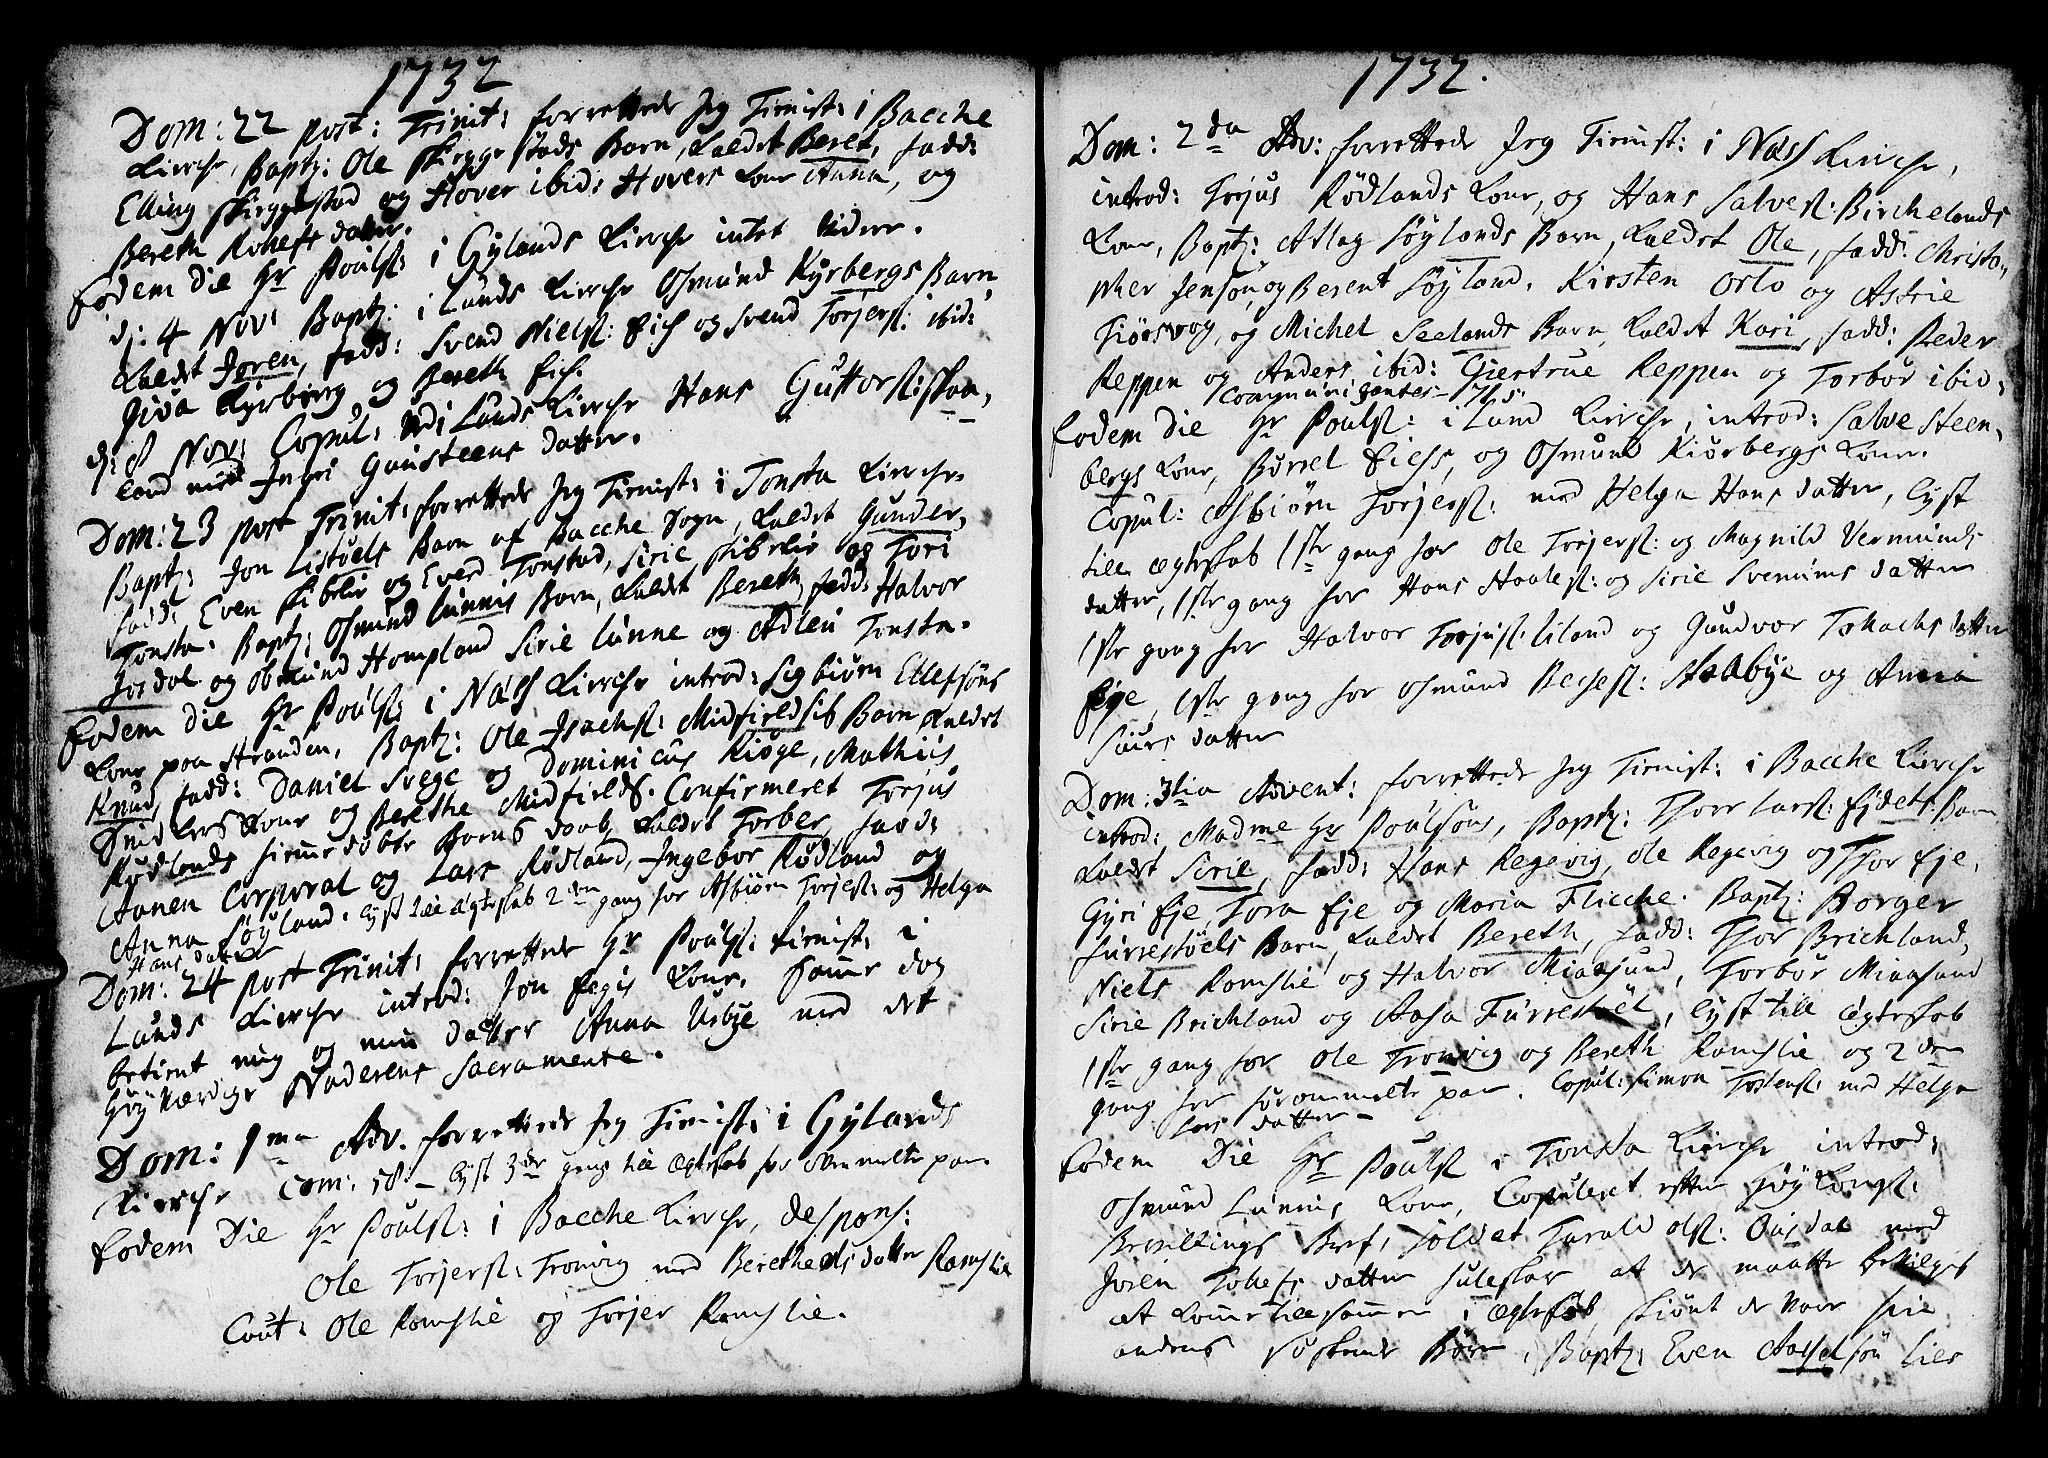 1732
Dom: 22 post: Trinit: forrettede Jeg Tienist: i Bacche
Kirche, Baptz: Ole Skieggestads Barn, kaldet Beret, fadd:
Elling Skieggestad og Hover ibid: Hovers kone Anna, og
Bereth Roliefs datter.
Eodem die Hr Poulss: i Gylands Kirche intet videre.
d: 4 Nov: Baptz: i Lunds Kirche Osmund Kyrbergs Barn
kaldet Joren, fadd: Svend Nielss: Eich og Svend Torjerss: ibid:
Giva Kyrberg og Bereth Eich.
d: 8 Nov: Copul: i Lunds Kirche Hans Guttorss:
land med Ingri Gunsteens datter.
Dom: 23 post Trinit: forrettede Jeg Tienist: i Tonsta Kirche
Baptz: Jon Listøels Barn af Bacche Sogn, kaldet Gunder,
fadd: Even Skibelie og Everd Tonstad, Sirie Skibelie og Tori
Tonsta. Baptz: Osmund Lunnis Barn, kaldet Bereth, fadd: Halvor
Josdal og Obmund Hompland Sirie Lunne og Adlei Tonsta.
Eodem die Hr Poulss: i Næss Kirche introd: Sigbiørn Ellefsøns
kone paa Stranden, Baptz: Ole Isachss: Midfieldsib Barn kaldet
Knud, fadd: Daniel Svege og Dominicus Kiøge, Mathiis
Snidkers kone og Berethe Midfields. Confirmeret Torjus
Rødlands hiemmedøbte Barns daab, kaldet Torber, fadd:
Aanen Corporal og Lars Rødland, Ingebor Rødland og
Anna Søyland. Lyst till ægteskab 2den gang for Asbiørn Torjerss: og Helga
Hans datter
Dom: 24 post Trinit: forrettede Hr Poulss: tienist: i
Lunds Kirche introd: Jon Eegis kone, samme dag
betient mig og min datter Anna Usbye med det
høyværdige Naderens Sacramente.
Dom: 1ma Adv. forrettede Jeg Tienist: i Gylands
Kirche Com: 58 - Lyst 3de gang till ægteskab for ovenmelte par
Eodem Die Hr Poulss: i Bacche Kirche, despons:
Ole Torjerss: Tronvig med Berethe Ols datter Ramslie
Caut: Ole Ramslie og Torjer Ramslie.
1732.
Dom: 2da Adv: forrettede Jeg Tienist: i Næss Kirche,
introd: Torjus Rødlands kone, og Hans Salvess: Birchelands
kone, Baptz: Atlag Søylands Barn, kaldet Ole, fadd: Christo-
pher Jensøn, og Berent Søyland, Kirsten Orlo og Astrie
Fiørsvog, og Michel Seelands Barn, kaldet Kari, fadd: Peder
Reppen og Anders ibid: Giertrue Reppen og Torbør ibid:
Communicantes - 176
Eodem die Hr Poulss: i Lund Kirche, introd: Salve Steen-
bergs kone, Børrel Eichs, og Osmund Kiørbergs kone.
Copul: Asbiørn Torjerss: med Helga Hans datter, lyst
till ægteskab 1ste gang for Ole Torjerss: og Magnild Vermunds
datter, 1ste gang for Hans Haaless: og Sirie Svenums datter
1ste gang for Halvor Torjuss: Liland og Gundvor Tollachs datter
Eye, 1ste gang for Osmund Regess: Stabbye og Anna
Siurs datter
Dom: 3tia Advent: forrettede Jeg Tienist: i Bacche Kirche
introd: Madme Hr Poulsøns, Baptz: Thore Larss: Ejdets Barn
kaldet Sirie, fadd: Hans Regevig, Ole Regevig og Thor Eje,
Gyri Eje, Tora Eje og Maria Fliche. Baptz: Borger
Furrestøels Barn, kaldet Bereth, fadd: Thor Brichland,
Niels Ramslie og Halvor Miaasund, Torbør Miaasund
Sirie Brichland og Aasa Furrestøel, Lyst till ægteskab
1ste gang for Ole Tronvig og Bereth Ramslie og 2den
gang for forommelte par. Copul: Simon Tostenss: med Helge
Lars datter -
Eodem Die Hr Poulss i Tonsta Kirche introd:
Osmund Lunnis kone, Copuleret efter Høy Kongl:
Bevillings Bref, Soldat Tarald Olss: Ousdal med
Joren Tollefs datter Suleskar at de maatte bevilges
at komme tilsammen i ægteskab, skiønt de vare hin
andens Søskende Børn, Baptz: Even Aasselsøn Lies